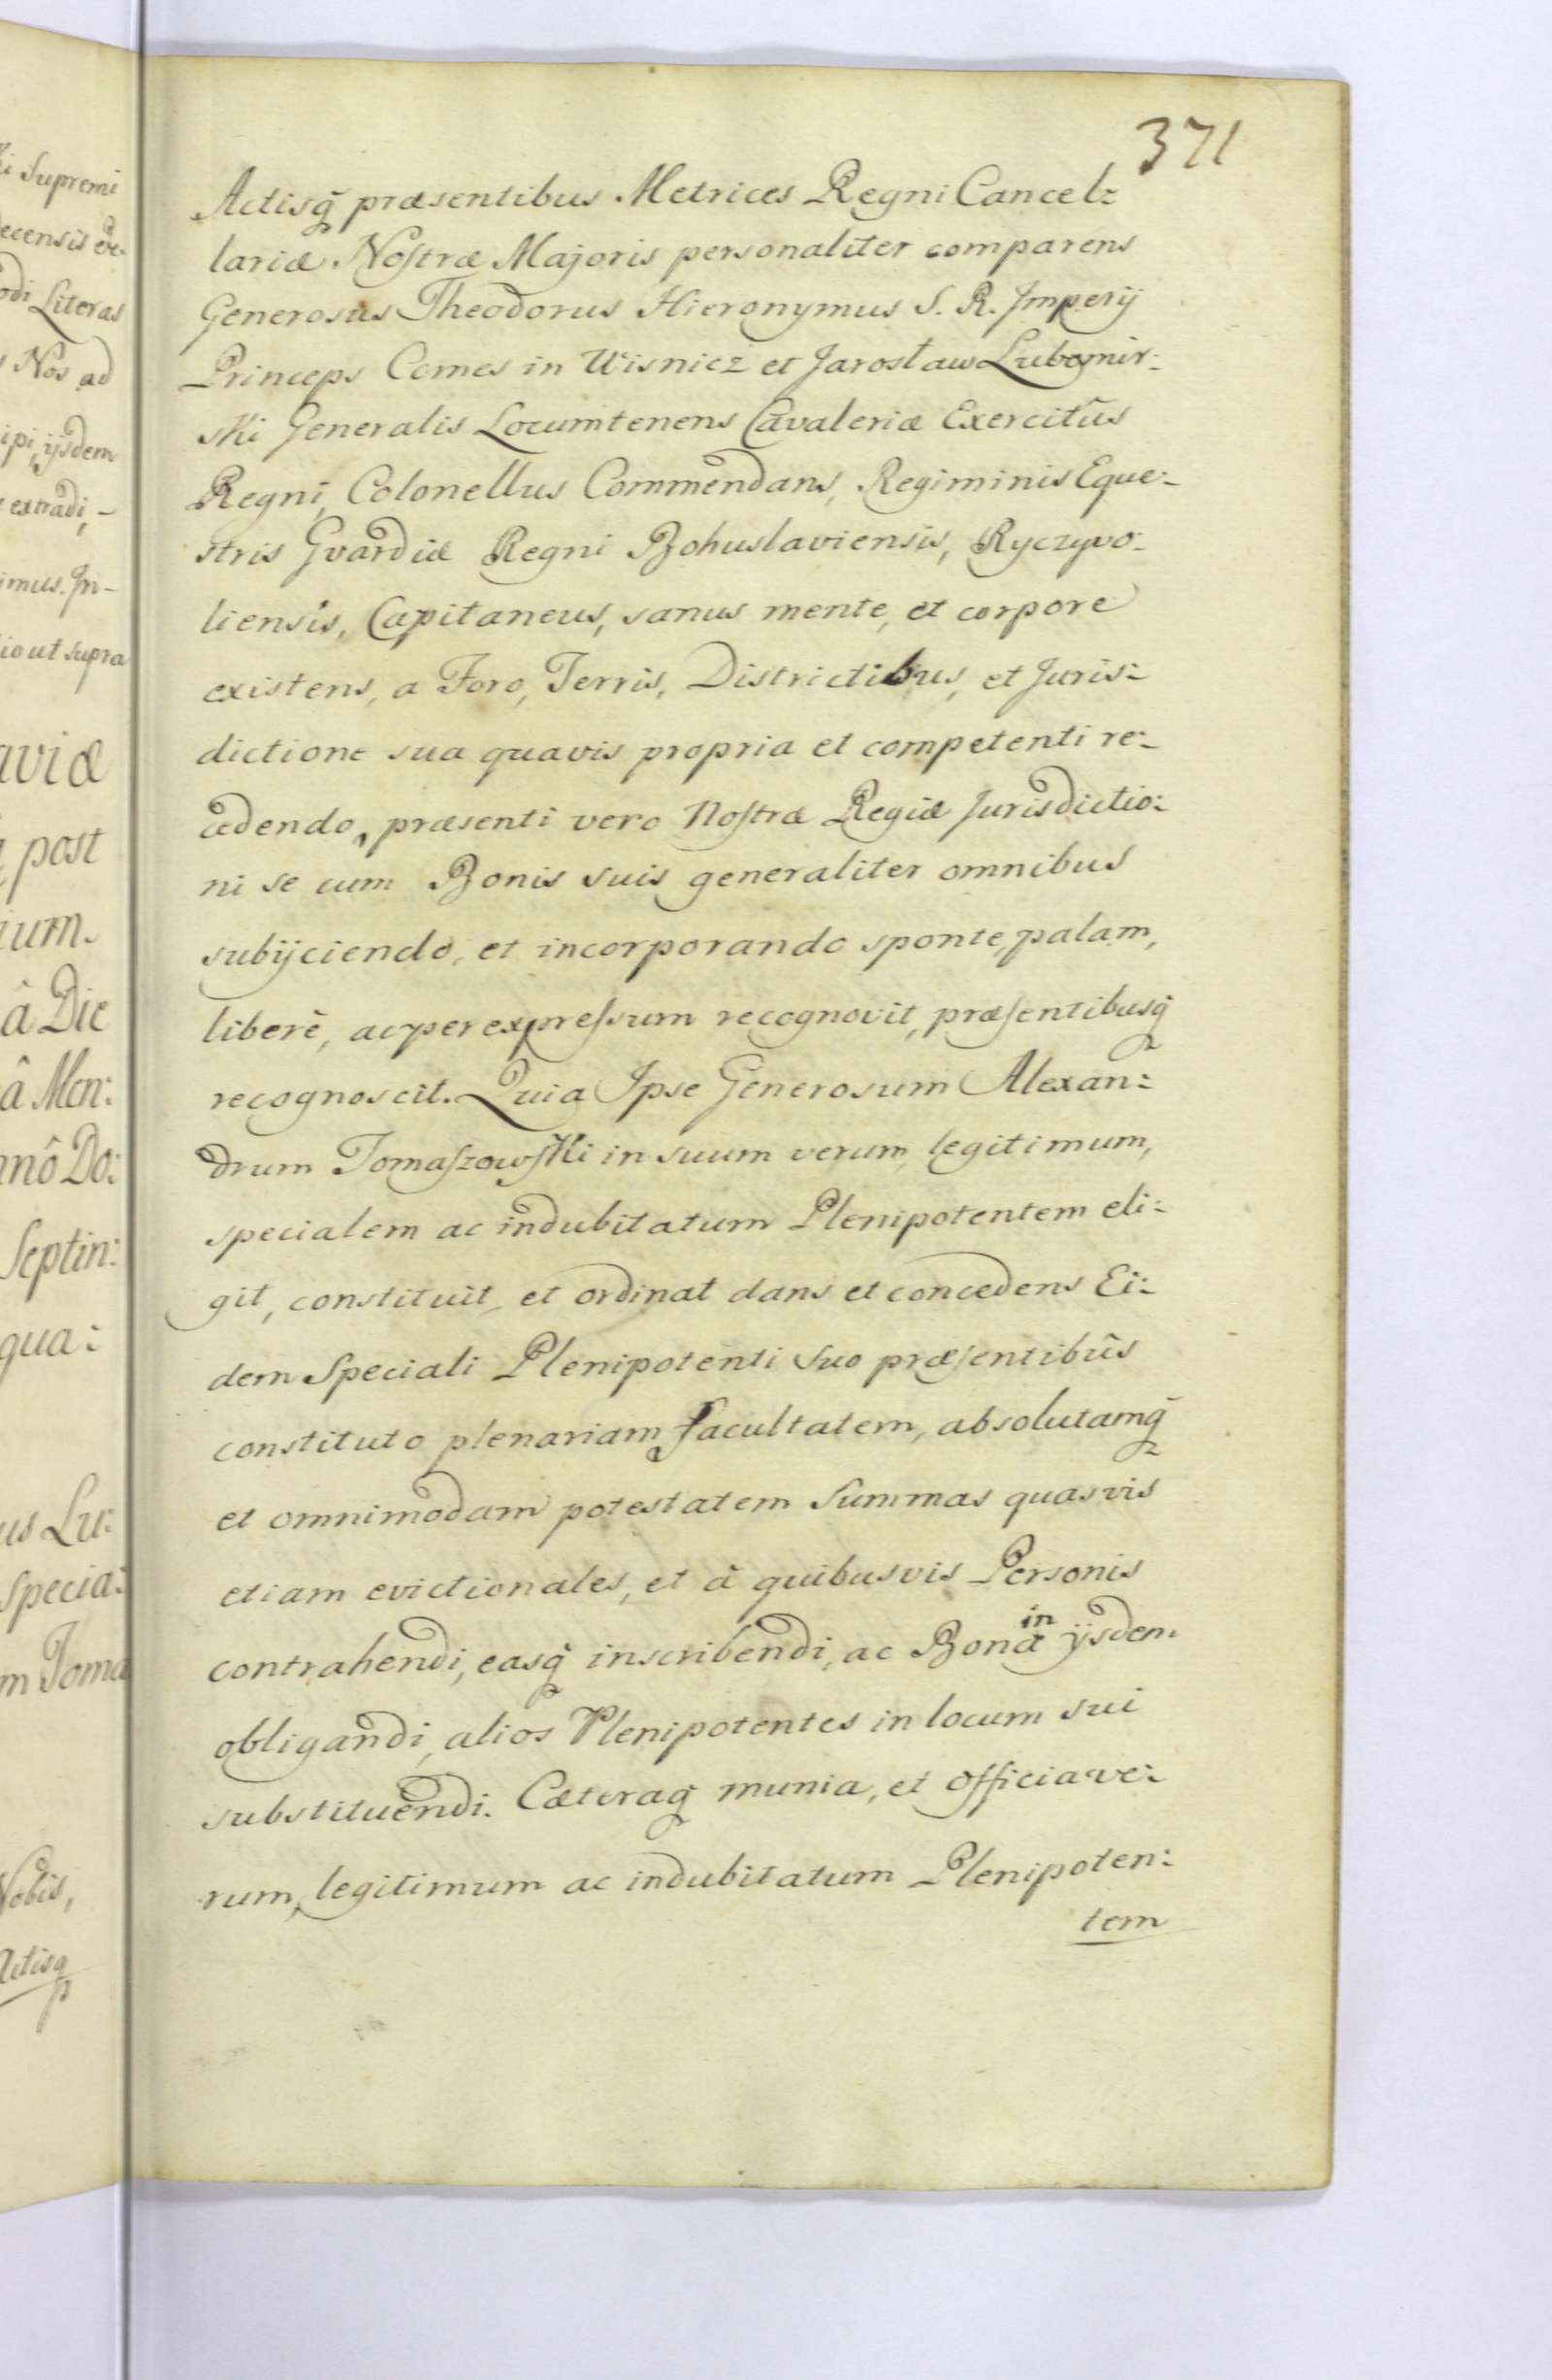 371
Actisq̃ præsentibus Metrices Regni Cancel:
lariæ Nostræ Majoris personaliter comparens
Generosus Theodorus Hieronymus S. R. Imperij
Princeps Comes in Wisnicz et Jarosław Lubomir:
ski Generalis Locumtenens Cavaleriæ Exercitûs
Regni, Colonellus Commendans, Regiminis Eque:
stris Gvardiæ Regni Bohuslaviensis, Ryczywo:
liensis, Capitaneus, sanus mente, et corpore
existens, a Foro, Terris, Districtibus, et Juris:
dictione sua quavis propria et competenti re:
cedendo, præsenti vero Nostræ Regiæ Jurisdictio:
ni se cum Bonis suis generaliter omnibus
subijciendo, et incorporando sponte, palam,
liberè, ac per expressum recognovit, præsentibusq̃
recognoscit. Quia Ipse Generosum Alexan:
drum Tomaszowski in suum verum, legitimum,
specialem ac indubitatum Plenipotentem eli:
git, constituit, et ordinat dans et concedens Ei:
dem Speciali Plenipotenti Suo præsentibûs
constituto plenariam facultatem, absolutamq̃
et omnimodam potestatem Summas quasvis
etiam evictionales, et à quibusvis Personis
contrahendi, easq̃ inscribendi, ac Bona in ijsdem
obligandi, alios Plenipotentes in locum sui
substituendi. Cæteraq̃ munia, et officia ve:
rum, legitimum ac indubitatum Plenipoten:
tem
ki Supremi
odi Literas
s Nos ad
ipi, ijsdem
extradi,-
imus. In-
io ut supra
aviæ
post
ium.
â Die
â Men:
nnô Do:
Septin:
qua:
us Lu:
Specia:
m Toma
Nobis,
Actisq